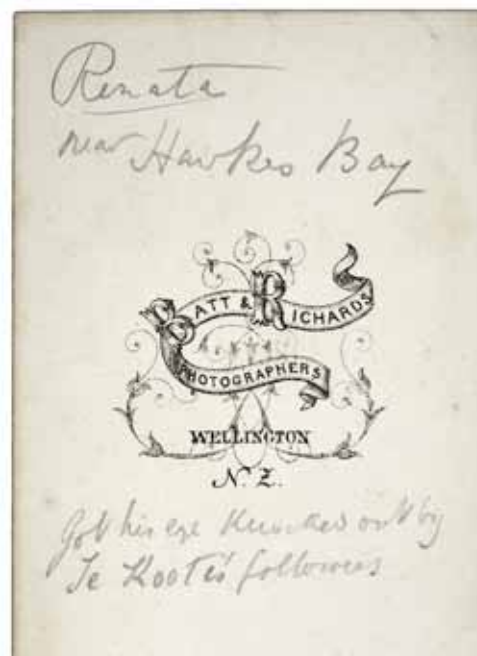 Renata
near Hawkes Bay
BATT & RICHARDS
PHOTOGRAPHERS
WELLINGTON
N. Z.
Got his eye knocked out by
Te Kooti's followers